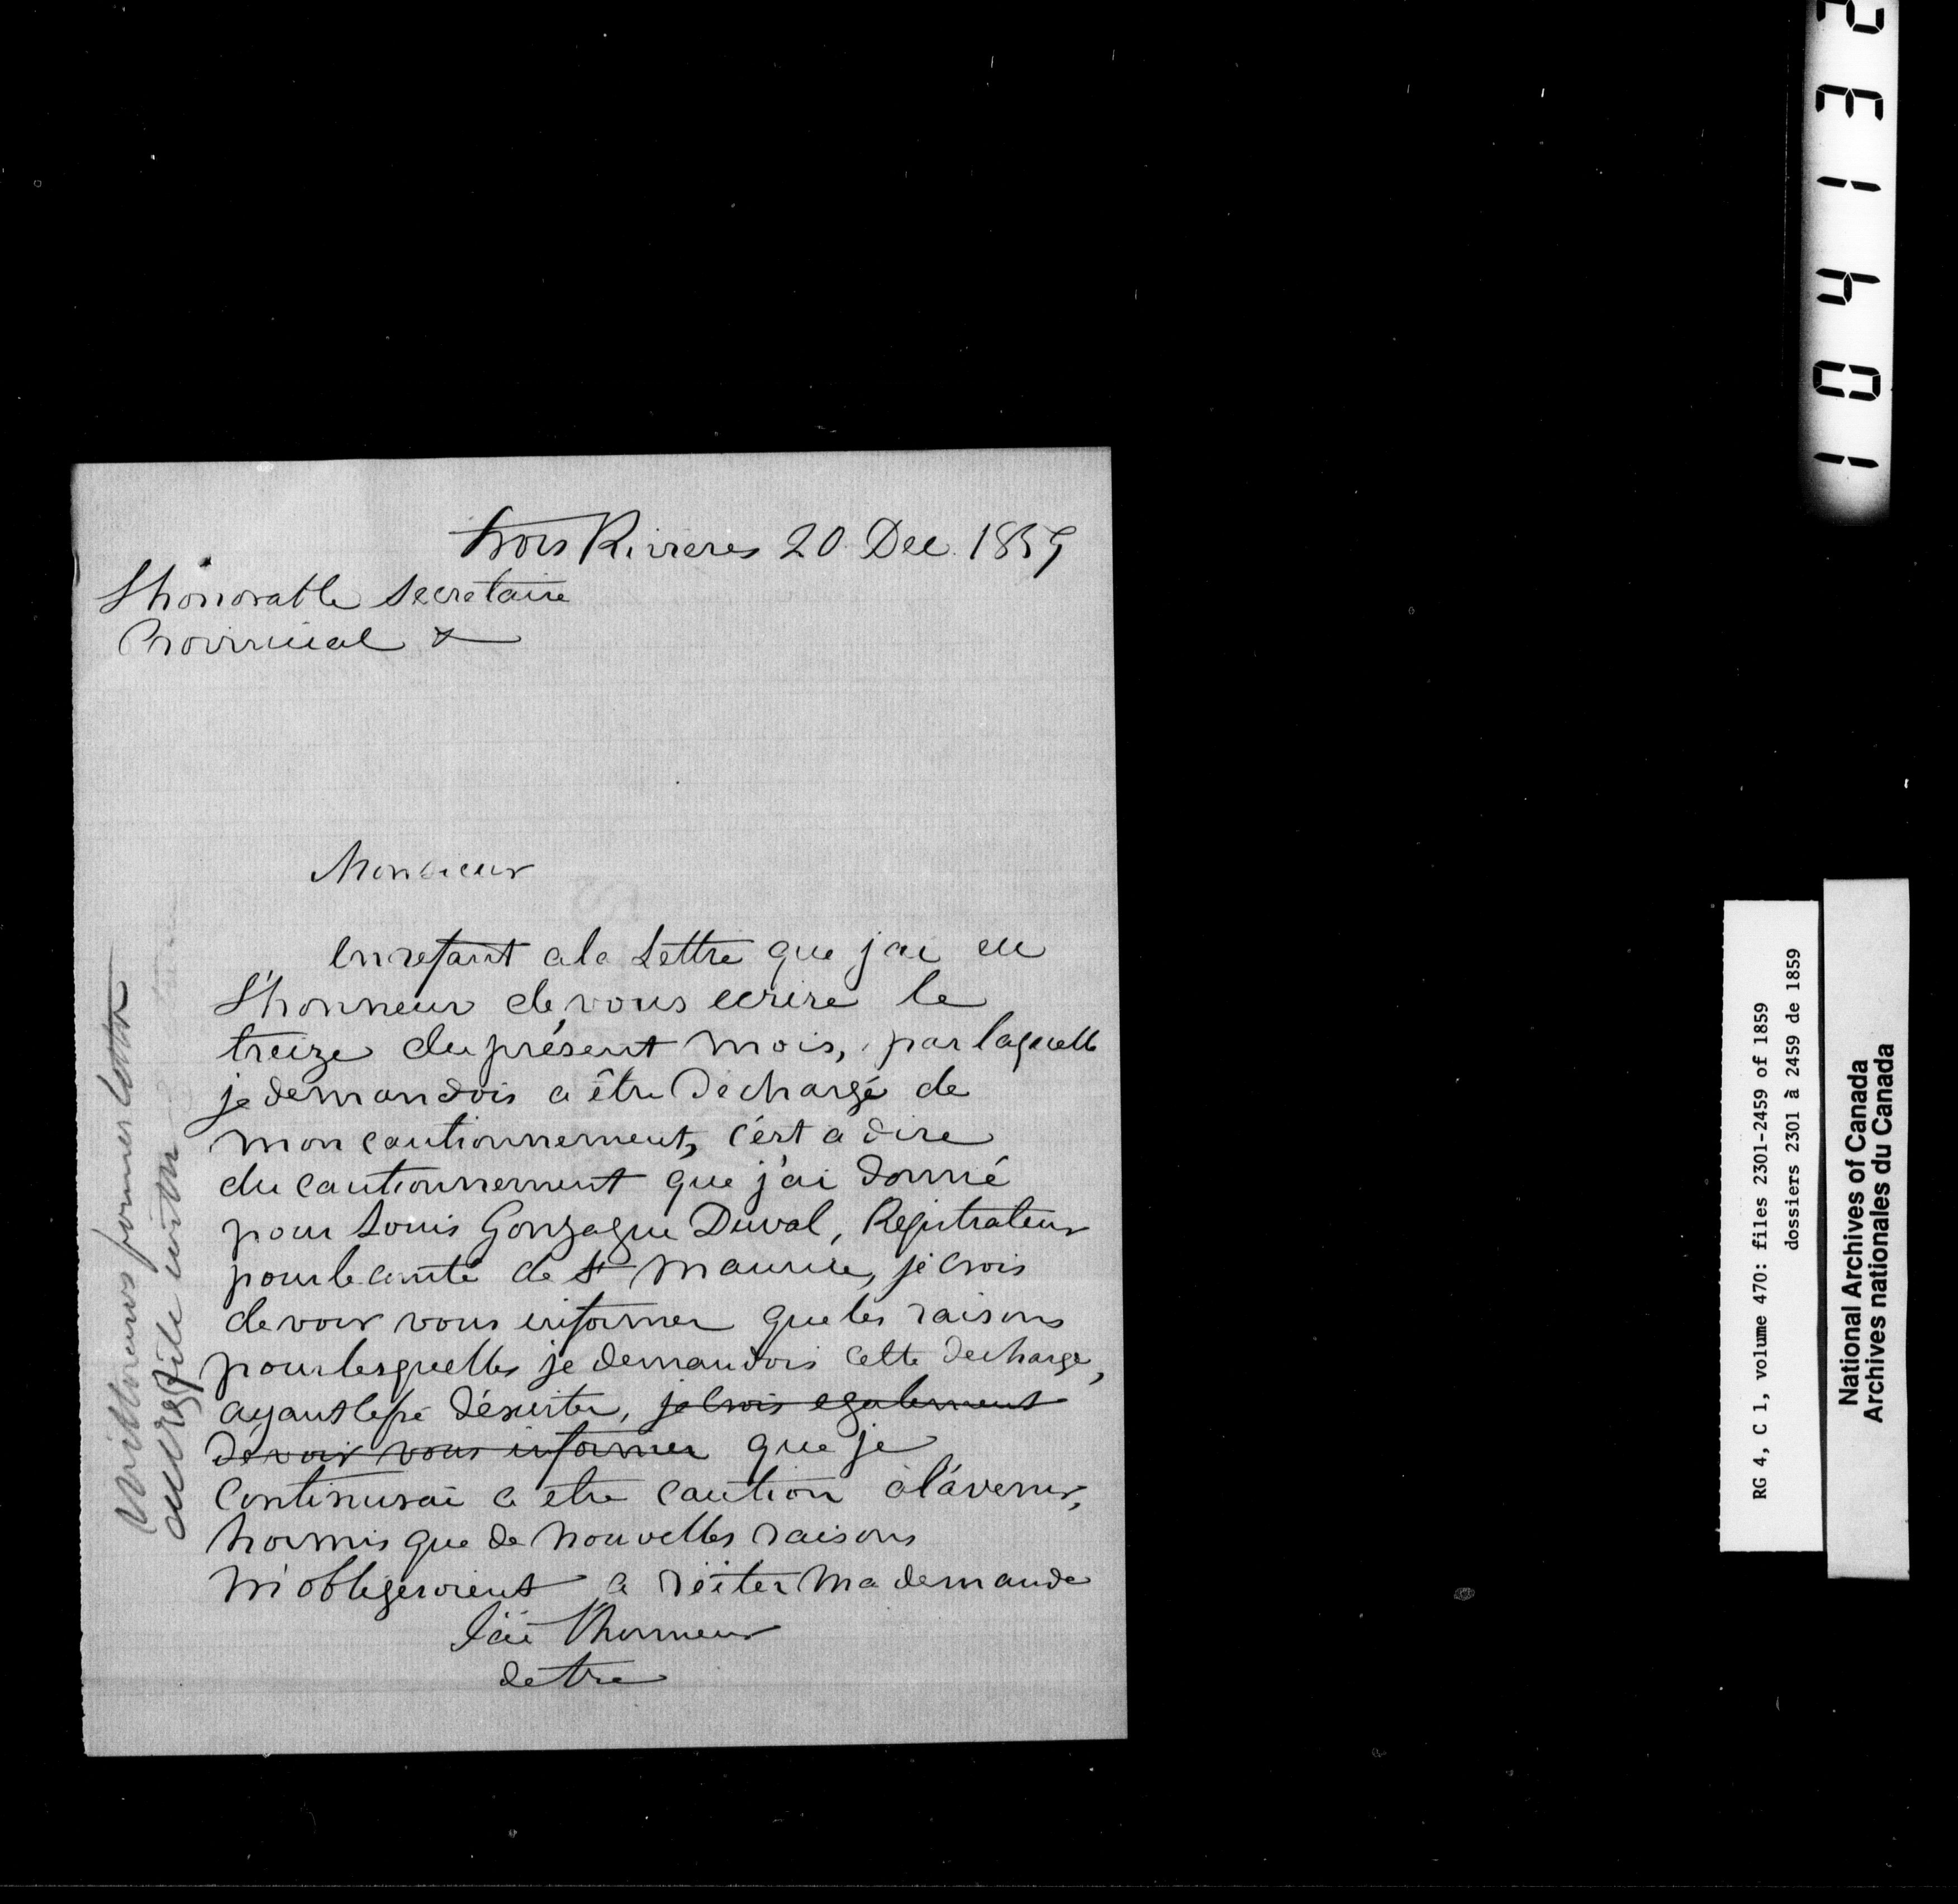 trois Rivieres 20 Dec. 1859
L'honorable Secretaire
Provincial &
Monsieur
En refant a la Lettre que j'ai eu
L'honneur de vous ecrire le
treize du présent mois, par laquelle
je demandois a être Dechargé de
mon cautionnement, c'ést a dire
du cautionnement que j'ai Donné
pour Louis Gonzague Duval, Registrateur
pour le comté de St Maurice, je crois
devoir vous informer que les raisons
pour lesquelles je demandois cette decharge,
ayant cessé d'éxister, je crois egalement
devoir vous informer que je
Continurai a etre caution à l'avenir,
hormis que de nouvelles raisons
m'obligeroient a réiter ma demande
J'ai l'honneur
detre
Within was former letter
on file within
1 0 4 1 3 2
RG 4, C 1, volume 470: files 2301-2459 of 1859
dossiers 2301 à 2459 de 1859
National Archives of Canada
Archives nationales du Canada